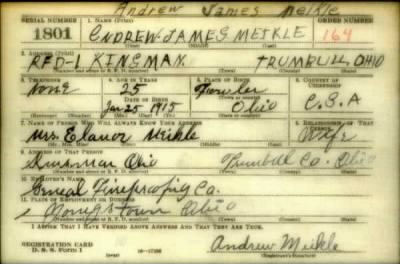 Andrew James Meikle
SERIAL NUMBER
1801
ANDREW JAMES MEIKLE
164
RFD-1 KINSMAN TRUMBULL, OHIO
4. TELEPHONE 5. AGE IN YEARS 6. PLACE OF BIRTH 7. COUNTRY OF CITIZENSHIP
None 25 Fowler
DATE OF BIRTH
Jan 25 1915 Ohio U.S.A
7. NAME OF PERSON WHO WILL ALWAYS KNOW YOUR ADDRESS
Mrs. Elanor Meikle Wife
ADDRESS OF THAT PERSON
Kinsman Ohio Trumbull Co. Ohio
10. EMPLOYER'S NAME
General Fireproofing Co.
11. PLACE OF EMPLOYMENT OR BUSINESS
Youngstown Ohio
I AFFIRM THAT I HAVE VERIFIED ABOVE ANSWERS AND THAT THEY ARE TRUE.
REGISTRATION CARD
D. S. S. Form 1
Andrew Meikle